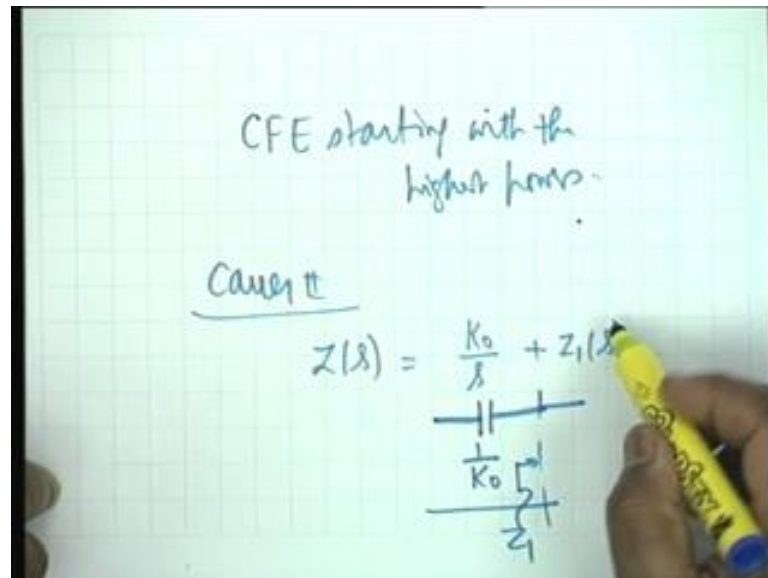 CFE starting with the
highest powers.
Cauer II
Z(s) = K₀/s + Z₁(s
1/K₀
Z₁